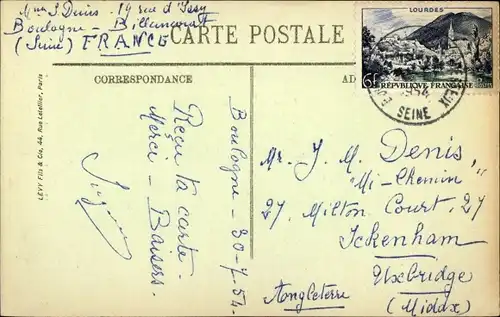 Mme J. Denis - 19 rue d'Issy
Boulogne - Billancourt
(Seine) FRANCE
CARTE POSTALE
LOURDES
6f
RÉPVBLIQVE FRANÇAISE
SEINE
CORRESPONDANCE
AD
LÉVY Fils & Cie, 44, Rue Letellier, Paris
Boulogne - 30-7-54.
Reçu ta carte.
Merci - Baisers.
Mr. J. M. Denis,
"Mi-Chemin"
27, Milton Court, 27
Ickenham
Uxbridge
Angleterre
(Middx)